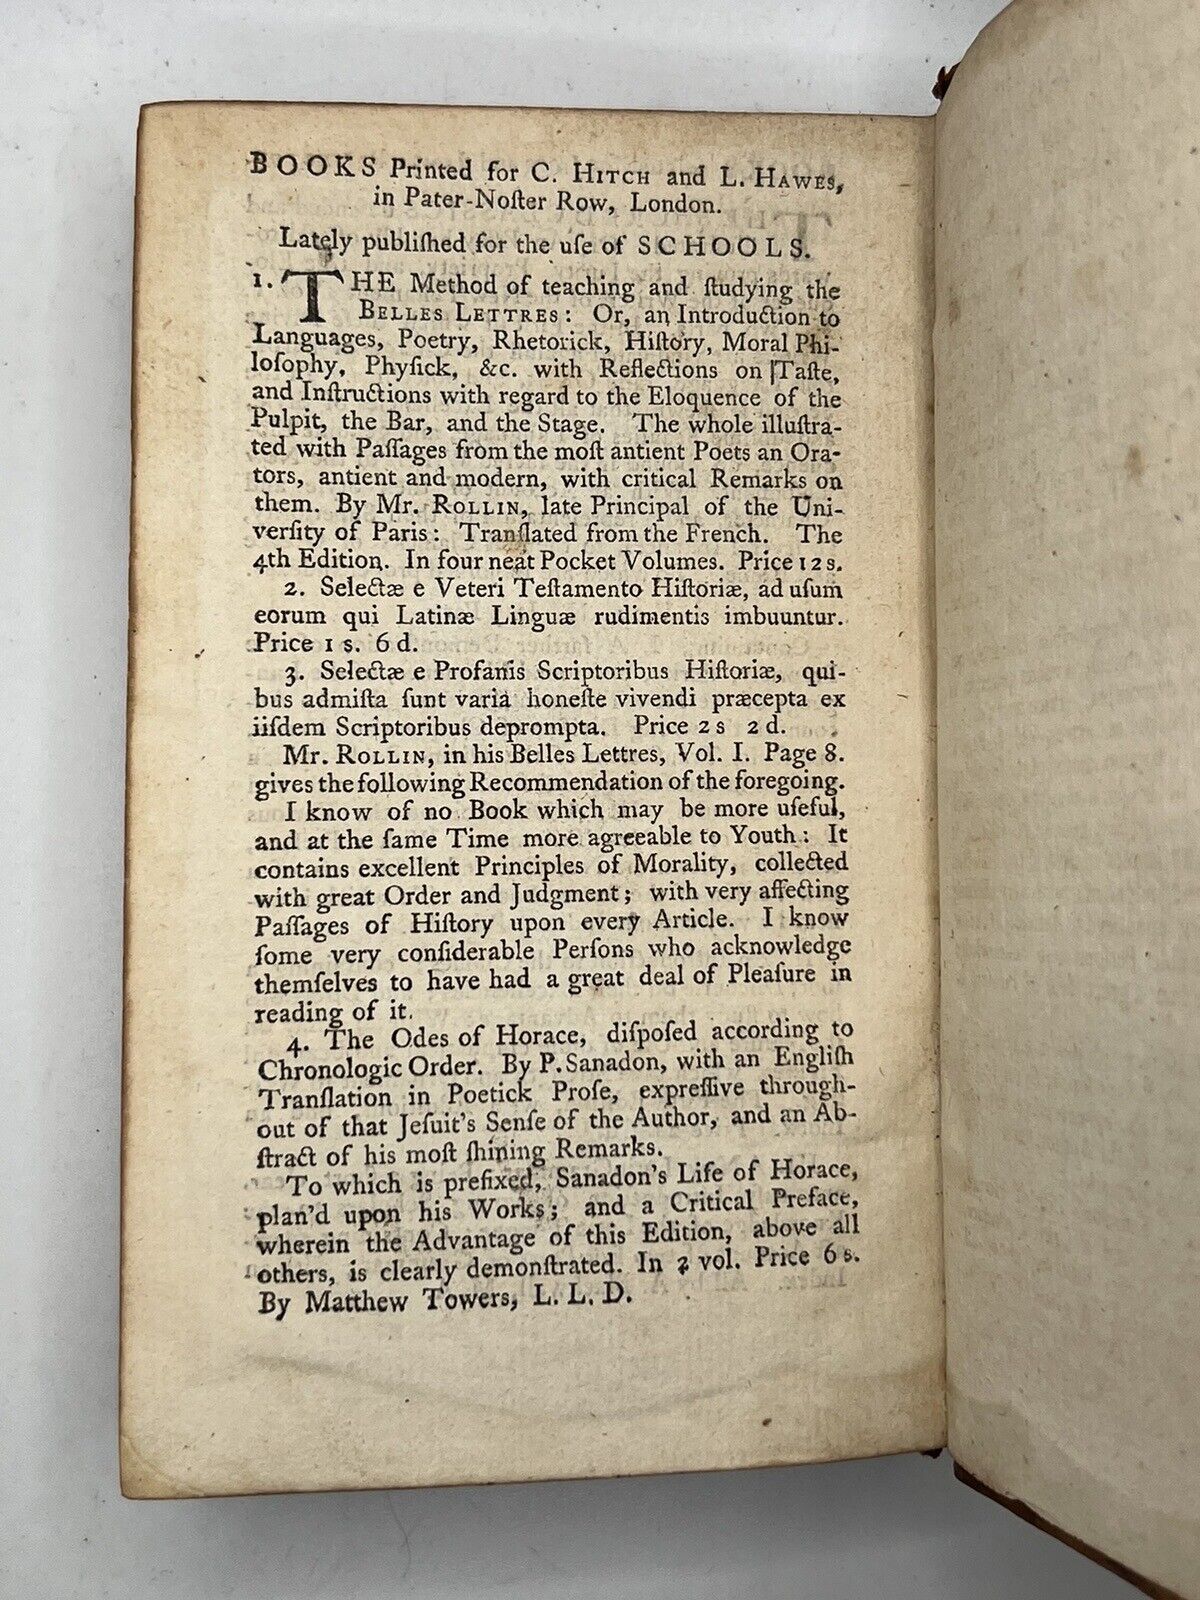 BOOKS Printed for C. HITCH and L. HAWES,
in Pater-Noſter Row, London.
Lately publiſhed for the uſe of SCHOOLS.
1. THE Method of teaching and ſtudying the
BELLES LETTRES: Or, an Introduction to
Languages, Poetry, Rhetorick, Hiſtory, Moral Phi-
loſophy, Phyſick, &c. with Reflections on Taſte,
and Inſtructions with regard to the Eloquence of the
Pulpit, the Bar, and the Stage. The whole illuſtra-
ted with Paſſages from the moſt antient Poets an Ora-
tors, antient and modern, with critical Remarks on
them. By Mr. ROLLIN, late Principal of the Uni-
verſity of Paris: Tranſlated from the French. The
4th Edition. In four neat Pocket Volumes. Price 12s.
2. Selectæ e Veteri Teſtamento Hiſtoriæ, ad uſum
eorum qui Latinæ Linguæ rudimentis imbuuntur.
Price 1 s. 6 d.
3. Selectæ e Profanis Scriptoribus Hiſtoriæ, qui-
bus admiſta ſunt varia honeſte vivendi præcepta ex
iiſdem Scriptoribus deprompta. Price 2 s 2 d.
Mr. ROLLIN, in his Belles Lettres, Vol. I. Page 8.
gives the following Recommendation of the foregoing.
I know of no Book which may be more uſeful,
and at the ſame Time more agreeable to Youth: It
contains excellent Principles of Morality, collected
with great Order and Judgment; with very affecting
Paſſages of Hiſtory upon every Article. I know
ſome very conſiderable Perſons who acknowledge
themſelves to have had a great deal of Pleaſure in
reading of it.
4. The Odes of Horace, diſpoſed according to
Chronologic Order. By P. Sanadon, with an Engliſh
Tranſlation in Poetick Proſe, expreſſive through-
out of that Jeſuit's Senſe of the Author, and an Ab-
ſtract of his moſt ſhining Remarks.
To which is prefixed, Sanadon's Life of Horace,
plan'd upon his Works; and a Critical Preface,
wherein the Advantage of this Edition, above all
others, is clearly demonſtrated. In 2 vol. Price 6 s.
By Matthew Towers, L. L. D.